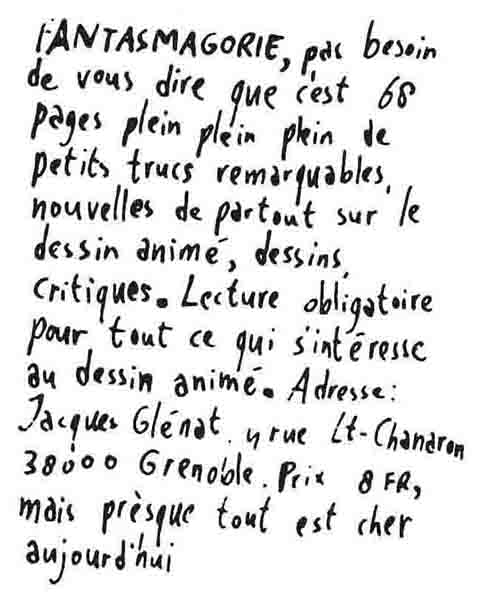 FANTASMAGORIE, pas besoin
de vous dire que c'est 68
pages plein plein plein de
petits trucs remarquables,
nouvelles de partout sur le
dessin animé, dessins,
critiques. Lecture obligatoire
pour tout ce qui s'intéresse
au dessin animé. Adresse:
Jacques Glénat. 4 rue Lt-Chanaron
38000 Grenoble. Prix 8 FR,
mais prèsque tout est cher
aujourd'hui